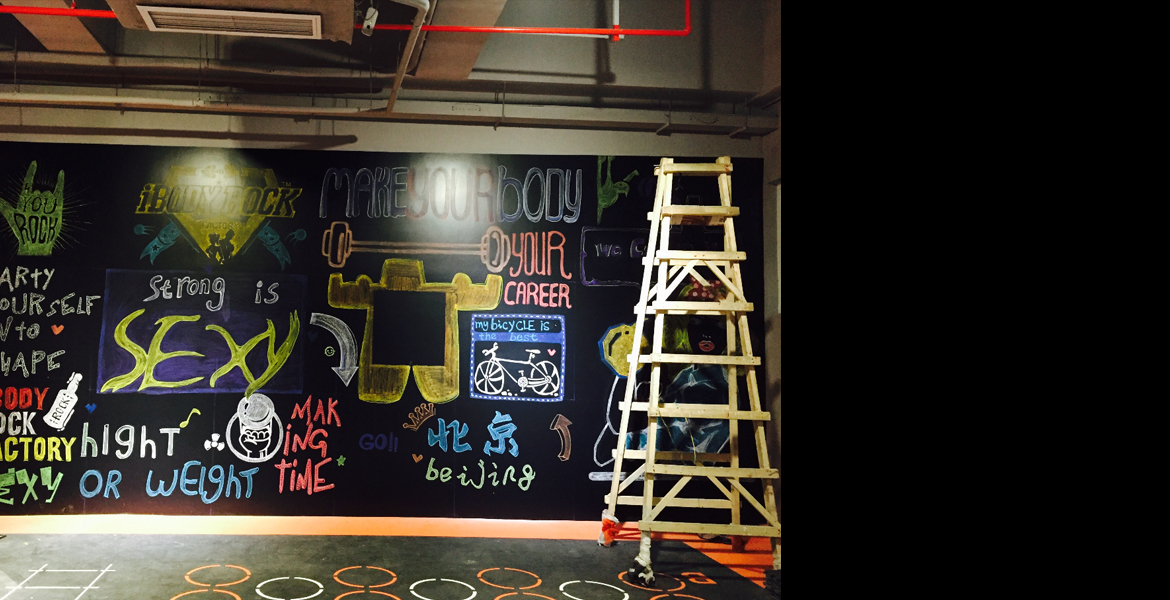 YOU
ROCK
iBODYROCK
MAKE YOUR BODY
YOUR
CAREER
ARTY
OURSELF
to
HAPE
Strong is
SEXY
my bicycle is
the best
BODY
OCK
ACTORY
EXY
ROCK!
hIGHT
OR WEIGHT
MAK
iNG
TiME
GO!!
北京
beijing